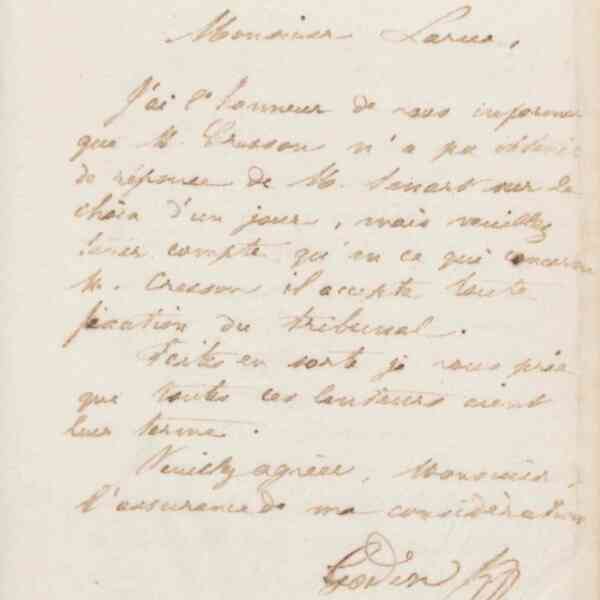 Monsieur Larue,
J'ai l'honneur de vous informer
que M. Cresson n'a pu obtenir
de réponse de M. Senart sur le
choix d'un jour, mais veuillez
tenir compte qu'en ce qui concerne
M. Cresson il accepte toute
fixation du tribunal.
Faites en sorte je vous prie
que toutes ces lenteurs aient
leur terme.
Veuillez agréer, Monsieur,
l'assurance de ma considération
Godin